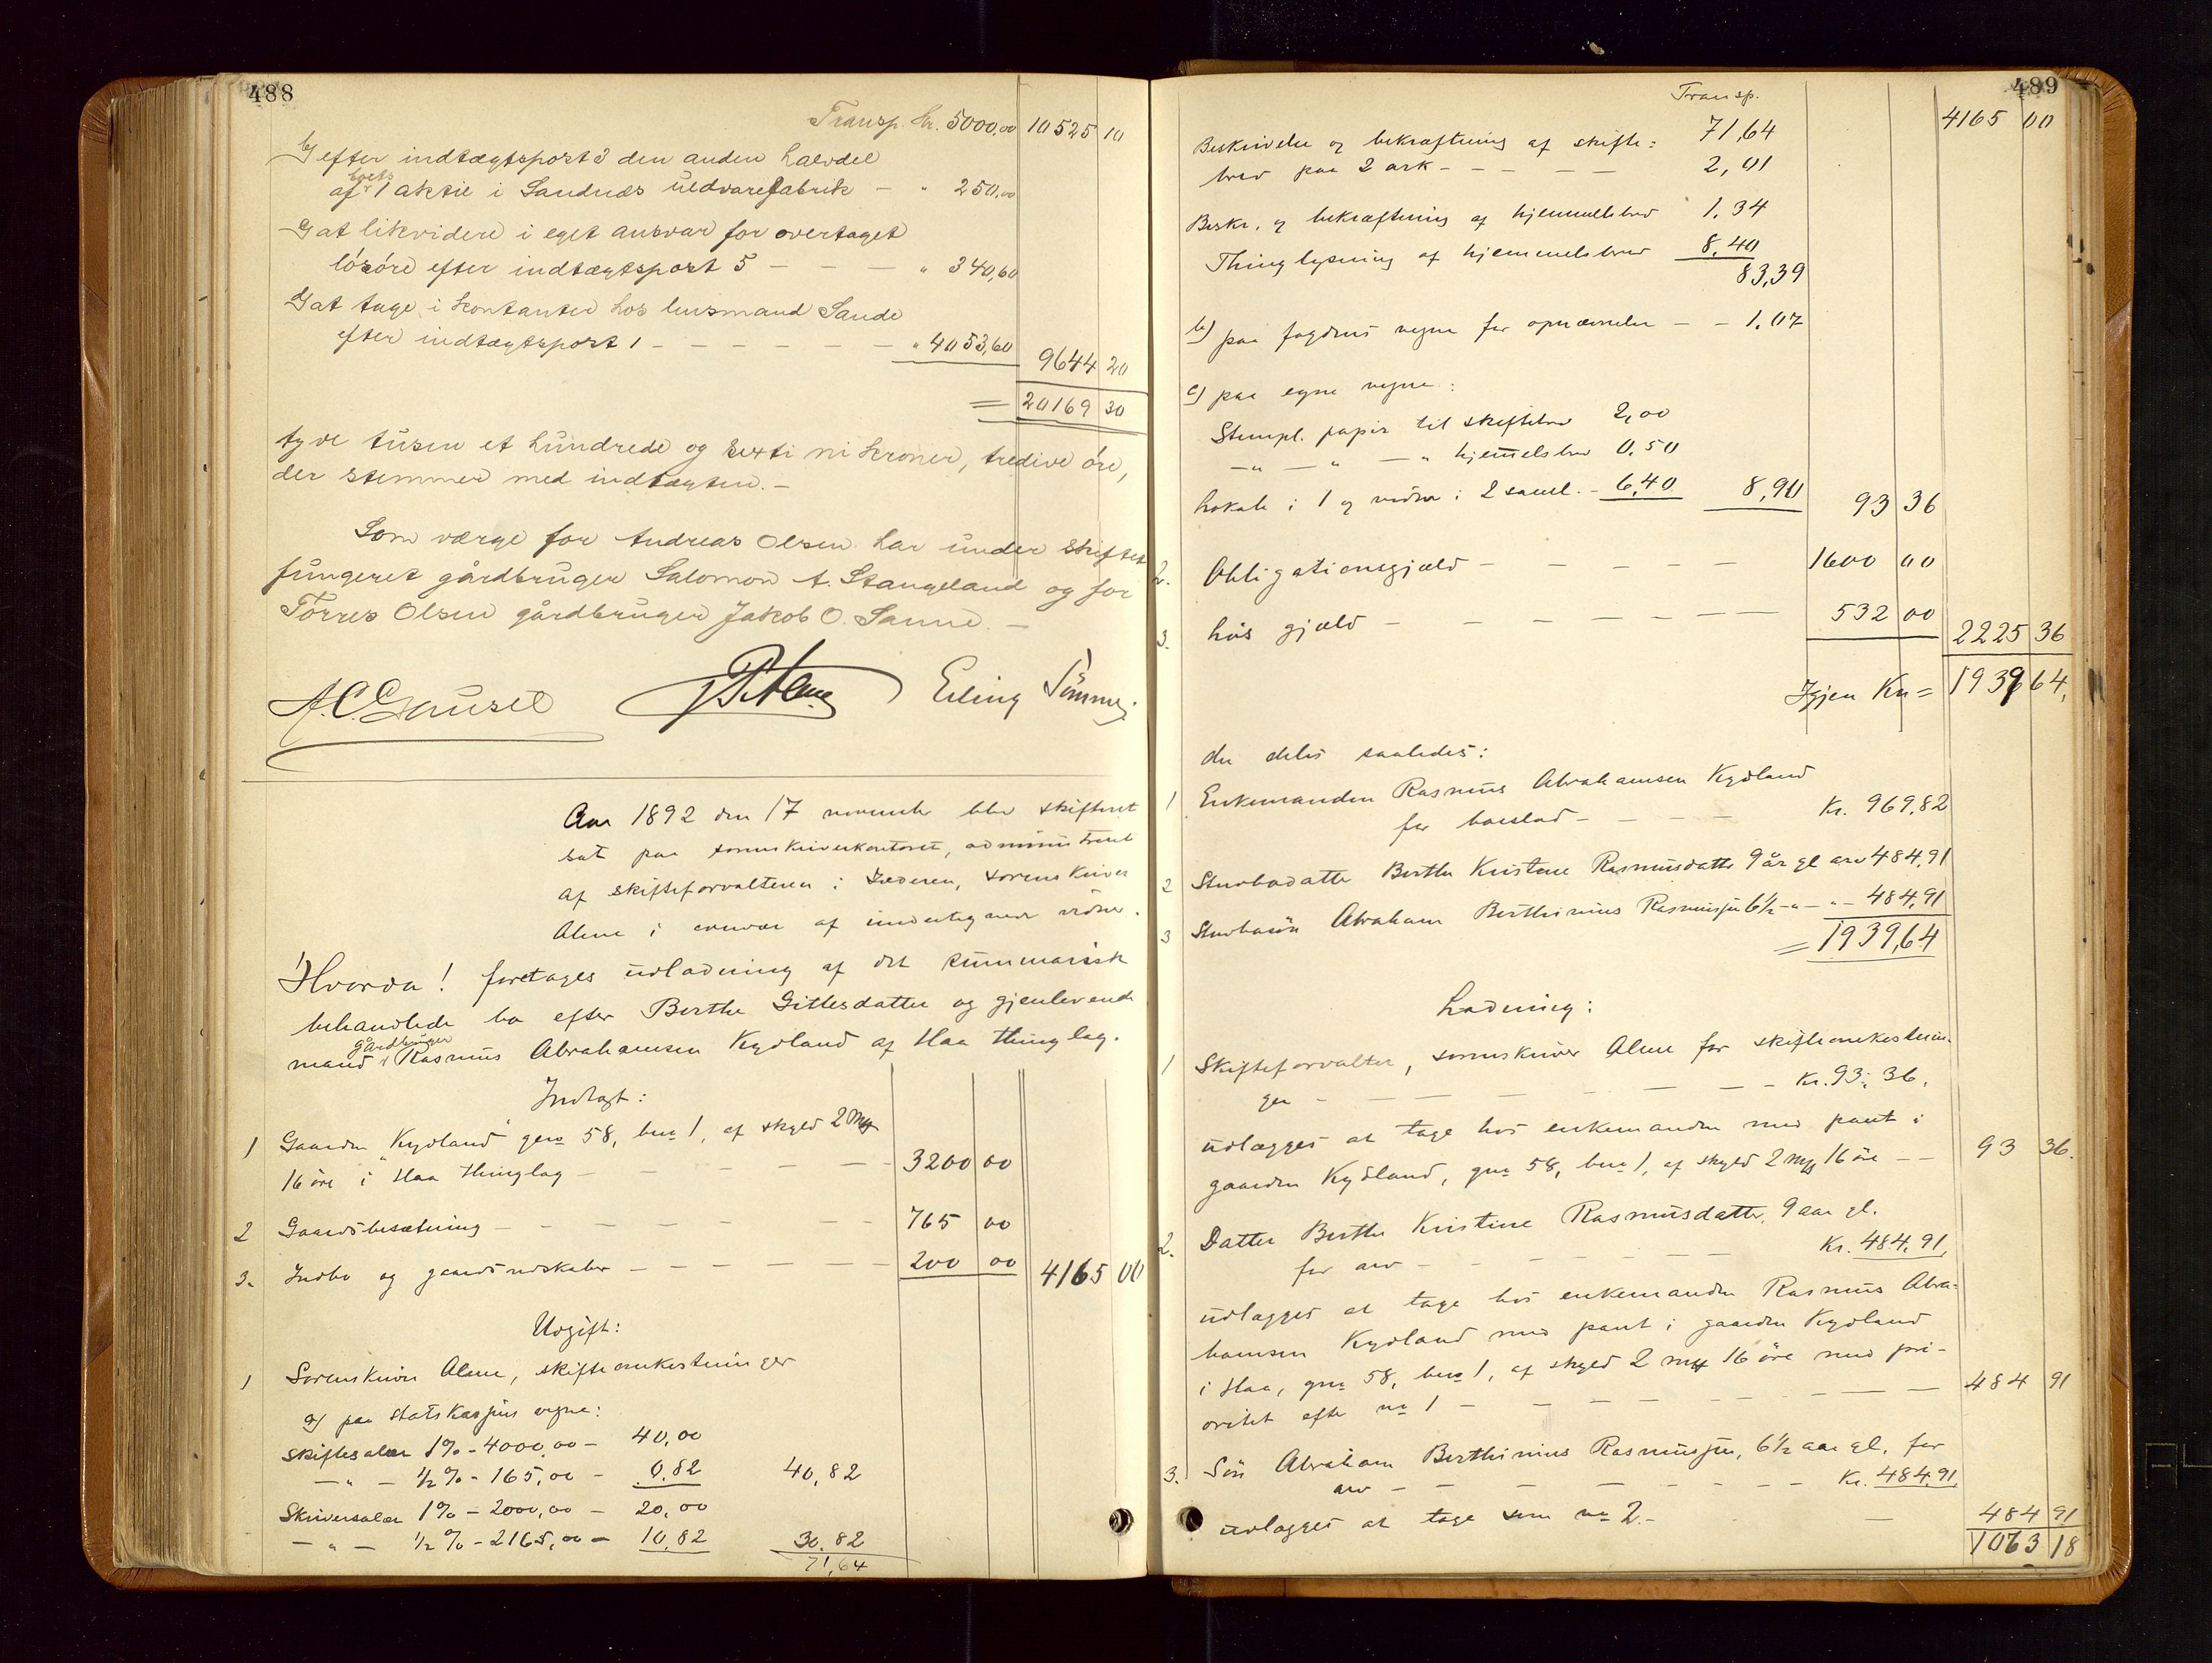 488
Transp. kr. 5000,00 10525 10
b) efter indtægtspost 3 den anden halvdel
af boets 1 aktie i Sandnæs uldvarefabrik — " 250,00
c) at likvidere i eget ansvar for overtaget
løsøre efter indtægtspost 5 — — — " 340,60
d) at tage i kontanter hos husmand Sande
efter indtægtspost 1 — — — — — — " 4053,60 9644 20
= 20169 30
tyve tusen et hundrede og sexti ni kroner, tredive øre,
der stemmer med indtægten. —
Som værge for Andreas Olsen har under skiftet
fungeret gårdbruger Salomon A. Stangeland og for
Tørres Olsen gårdbruger Jakob O. Sanne. —
A.C. Gausel Erling Tömme
Aar 1892 den 17 november blev skifteret
sat paa sorenskriverkontoret, administreret
af skifteforvalteren i Jæderen, sorenskriver
Alme i overvær af undertegnede vidner.
Hvorda! foretages udlodning af det summarisk
behandlede bo efter Berthe Gitlesdatter og gjenlevende
mand gårdbruger Rasmus Abrahamsen Kydland af Haa thinglag.
Indtægt:
1 Gaarden "Kydland" gno 58, bno 1, af skyld 2 Mk
16 øre i Haa thinglag — — — — — 3200 00
2 Gaardsbesætning — — — — — — 765 00
3. Indbo og gaardsredskaber — — — — — — 200 00 4165 00
Udgift:
1 Sorenskriver Alme, skifteomkostninger
a) paa statskassens vegne:
Skiftesalær 1% - 4000,00 — 40,00
— " — ½% - 165,00 — 0,82 40,82
Skriversalær 1% - 2000,00 — 20,00
— " — ½% - 2165,00 — 10,82 30,82
71,64
489
Transp. 4165 00
Beskrivelse og bekræftning af skifte= 71,64
brev paa 2 ark — — — — — 2,01
Beskr. og bekræftning af hjemmelsbrev 1,34
Thinglysning af hjemmelsbrev 8,40
83,39
b) paa fogdens vegne for opnævnelse — — 1,07
c) paa egne vegne:
Stempl. papir til skiftebrev 2,00
— " — " — " hjemmelsbrev 0,50
Lokale i 1 og vidner i 2 saml. - 6,40 8,90 93 36
2. Obligationsgjæld — — — — — — 1600 00
3. Løs gjæld — — — — — — — 532 00 2225 36
Igjen Kr = 1939 64,
der deles saaledes:
1 Enkemanden Rasmus Abrahamsen Kydland
for boeslod — — — — Kr. 969,82
2 Stervbodatter Berthe Kristine Rasmusdatter 9 år gl arv 484,91
3 Stervbosøn Abraham Berthinius Rasmussen 6½ — " — " — 484,91
= 1939,64
Lodning:
1 Skifteforvalter, sorenskriver Alme for skifteomkostnin-
ger — — — — — — — — Kr. 93,36.
udlægges at tage hos enkemanden med pant i
gaarden Kydland, gno 58, bno 1, af skyld 2 Mk 16 øre — — 93 36.
2. Datter Berthe Kristine Rasmusdatter, 9 aar gl.
for arv — — — — — — — Kr. 484,91,
udlægges at tage hos enkemanden Rasmus Abra-
hamsen Kydland med pant i gaarden Kydland
i Haa, gno 58, bno 1, af skyld 2 Mk 16 øre med pri-
oritet efter no 1 — — — — — — — — 484 91
3. Søn Abraham Berthinius Rasmussen, 6½ aar gl. for
arv — — — — — — — — Kr. 484,91,
udlægges at tage som no 2. — — 484 91
1063 18